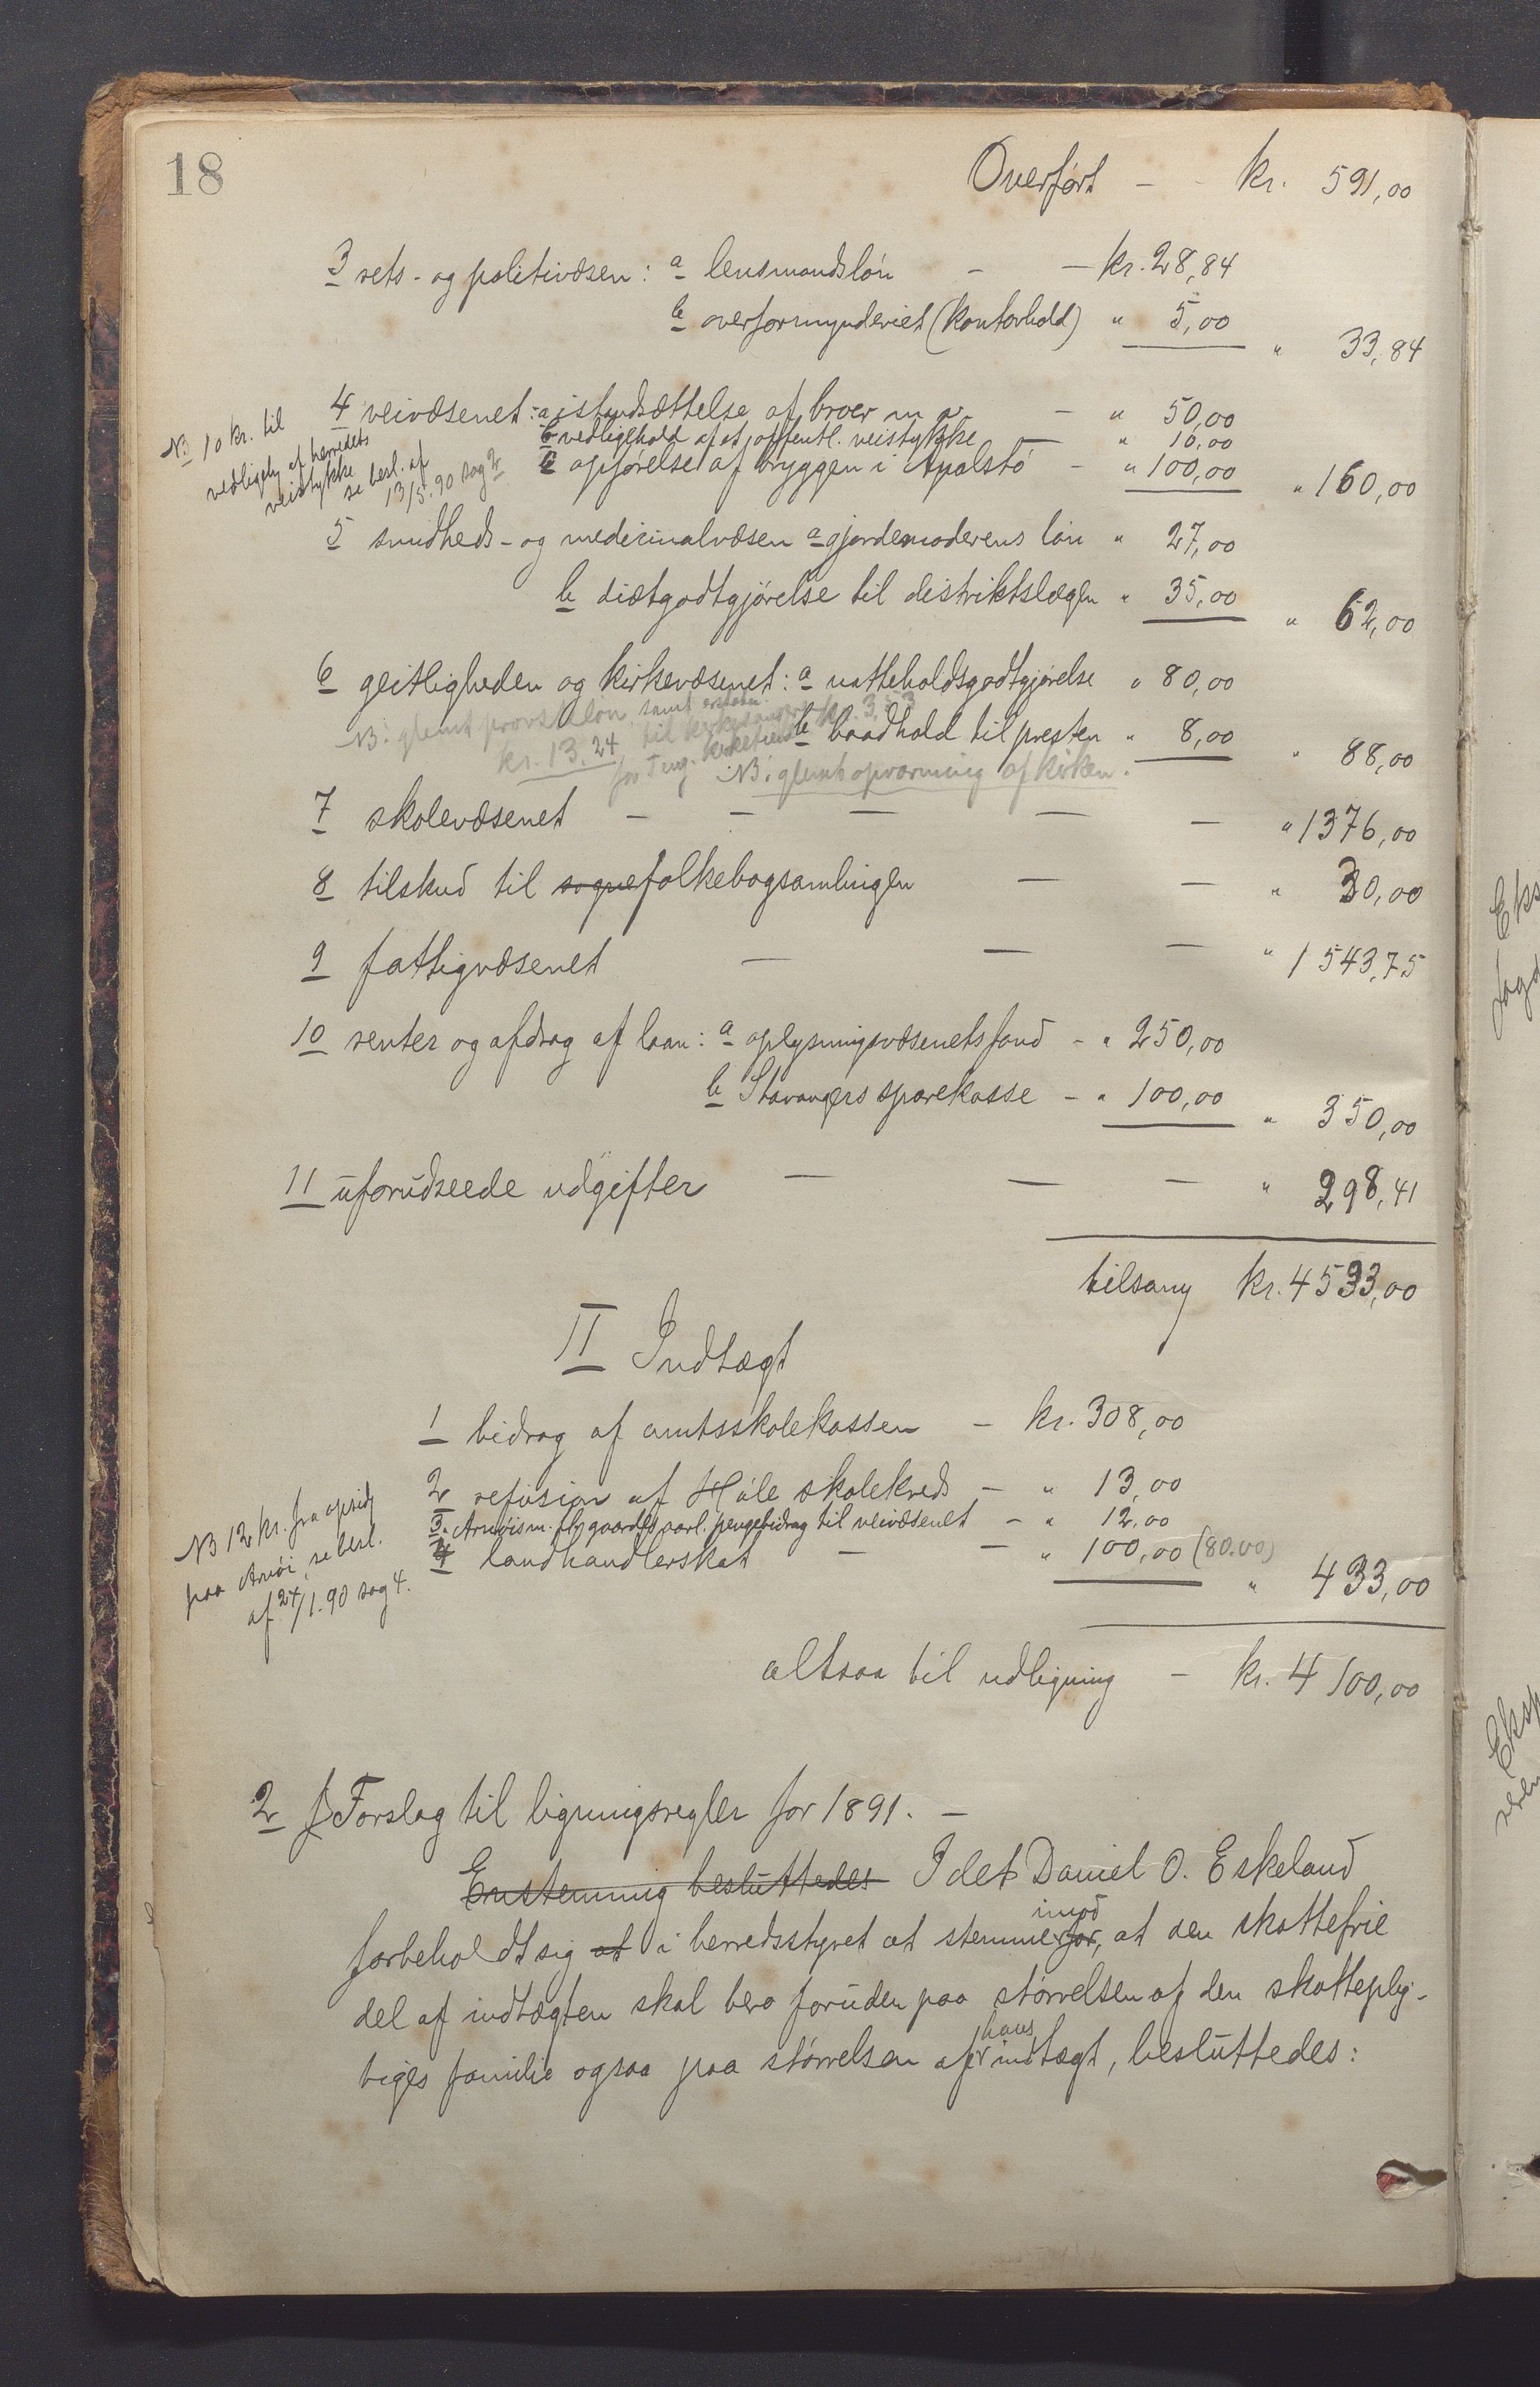 18
Overført - - kr. 591,00
3 rets- og politivæsen: a lensmandsløn - - kr. 28,84
b overformynderiet (kontorhold) " 5,00 " 33,84
4 veivæsenet: a istandsættelse af broer m. v. - " 50,00
b vedligehold af et offentl. veistykke - " 10,00
c opførelse af bryggen i Apalstø - " 100,00 " 160,00
NB 10 kr. til
vedligeh. af herredets
veistykke
se besl. af
13/5. 90 sag 2
5 sundheds- og medicinalvæsen a gjordemoderens løn " 27,00
b diætgodtgjørelse til distriktslægen " 35,00 " 62,00
6 geistligheden og kirkevæsenet: a natteholdsgodtgjørelse " 80,00
NB. glemt provsteløn samt
kr. 13.24 til kirkesanger kr. 3,53
b baadhold til presten " 8,00 " 88,00
NB. glemt opvarming af kirken.
7 skolevæsenet - - - - - " 1376,00
8 tilskud til sogne folkebogsamlingen - - " 30,00
9 fattigvæsenet - - - " 1543,75
10 renter og afdrag af laan: a oplysningsvæsenets fond - " 250,00
b Stavangers sparekasse - " 100,00 " 350,00
11 uforudseede udgifter - - - " 298,41
tilsam kr. 4533,00
II Indtægt
1 bidrag af amtsskolekassen - kr. 308,00
2 refusion af Håle skolekreds - " 13,00
3. Arnøis m. fl. gaardes aarl. pengebidrag til veivæsenet - " 12,00
4 landhandlerskat - - " 100,00 (80.00) " 433,00
NB 12 kr. fra opsid.
paa Arnøi, se besl.
af 24/1. 90 sag 4.
altsaa til udligning - kr. 4100,00
2 f Forslag til ligningsregler for 1891. -
Enstemmig besluttedes Idet Daniel O. Eskeland
imod
forbeholdt sig at i herredsstyret at stemme for, at den skattefrie
del af indtægten skal bero foruden paa størrelsen af den skatteplig-
hans
tiges familie ogsaa paa størrelsen af indtægt, besluttedes: